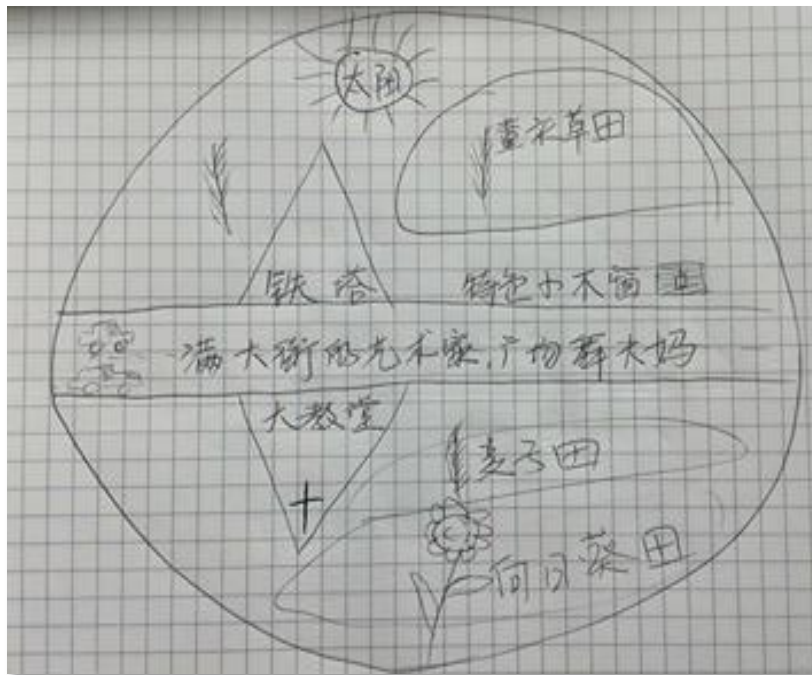 太阳
薰衣草田
铁塔
特色小木窗
满大街的艺术家,广场舞大妈
大教堂
麦子田
向日葵田